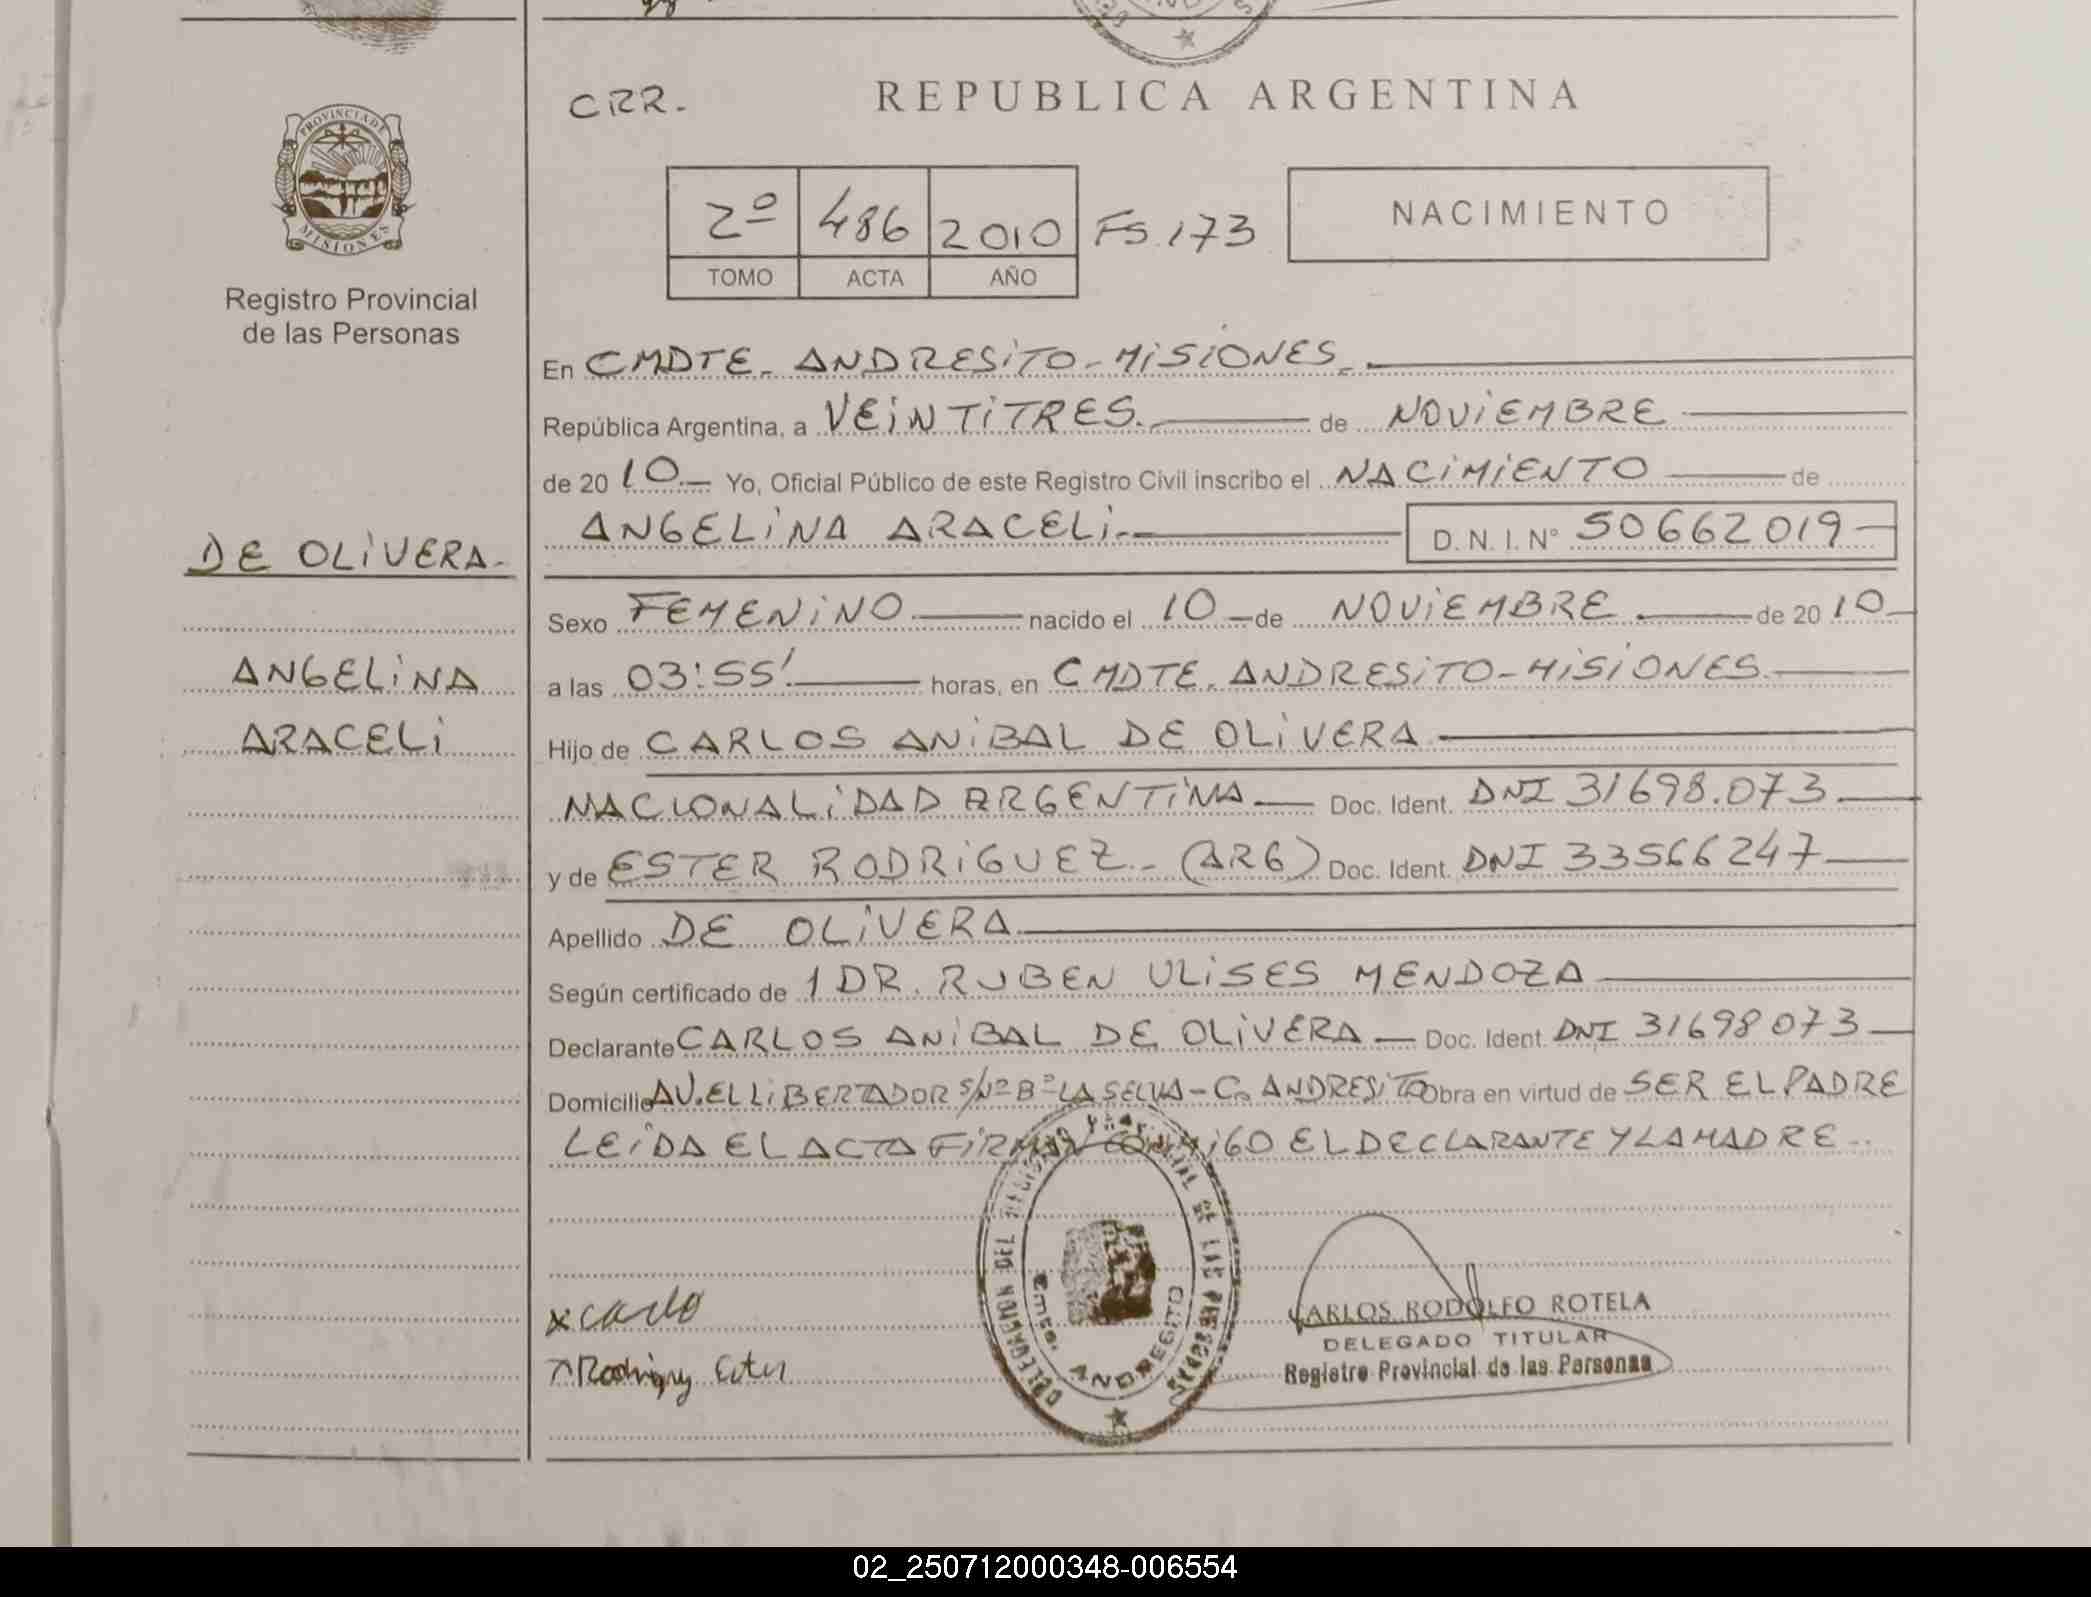 CRR.
REPUBLICA ARGENTINA
PROVINCIA DE
MISIONES
Registro Provincial
de las Personas
2º 486 2010 Fs. 173
TOMO ACTA AÑO
NACIMIENTO
En CMDTE. ANDRESITO - MISIONES.
República Argentina, a VEINTITRES. de NOVIEMBRE
de 20 10.- Yo, Oficial Público de este Registro Civil inscribo el NACIMIENTO de
ANGELINA ARACELI.- D.N.I. Nº 50662019-
DE OLIVERA.
ANGELINA
ARACELI
Sexo FEMENINO nacido el 10 de NOVIEMBRE de 20 10
a las 03:55' horas, en CMDTE. ANDRESITO - MISIONES
Hijo de CARLOS ANIBAL DE OLIVERA
NACIONALIDAD ARGENTINA Doc. Ident. DNI 31698.073
y de ESTER RODRIGUEZ - (ARG) Doc. Ident. DNI 33566247
Apellido DE OLIVERA
Según certificado de 1 DR. RUBEN ULISES MENDOZA
Declarante CARLOS ANIBAL DE OLIVERA Doc. Ident. DNI 31698073
Domicilio AV. EL LIBERTADOR S/Nº Bº LA SELVA - Co ANDRESITO Obra en virtud de SER EL PADRE
LEIDA EL ACTA FIRMAN CONMIGO EL DECLARANTE Y LA MADRE.
DELEGACION DEL REGISTRO PROVINCIAL DE LAS PERSONAS
Cmte. ANDRESITO
x Carlo
Rodrigu Ester
CARLOS RODOLFO ROTELA
DELEGADO TITULAR
Registro Provincial de las Personas
02_250712000348-006554